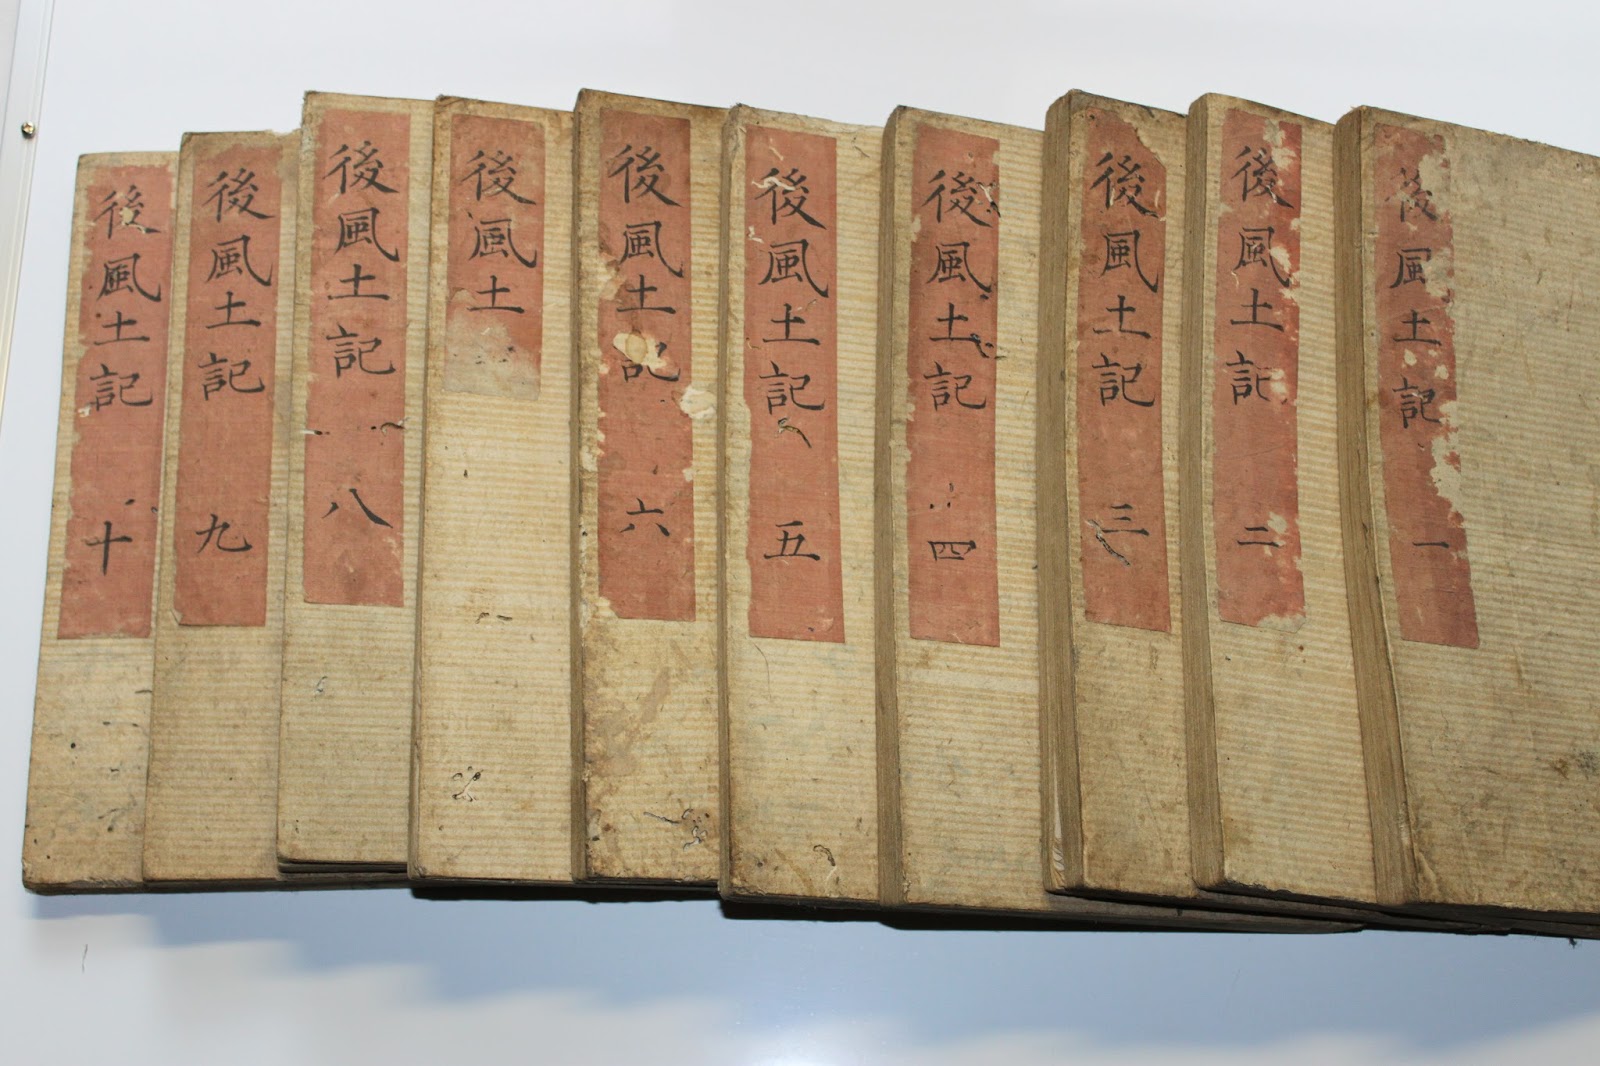 後風土記 一
後風土記 二
後風土記 三
後風土記 四
後風土記 五
後風土記 六
後風土
後風土記 八
後風土記 九
後風土記 十